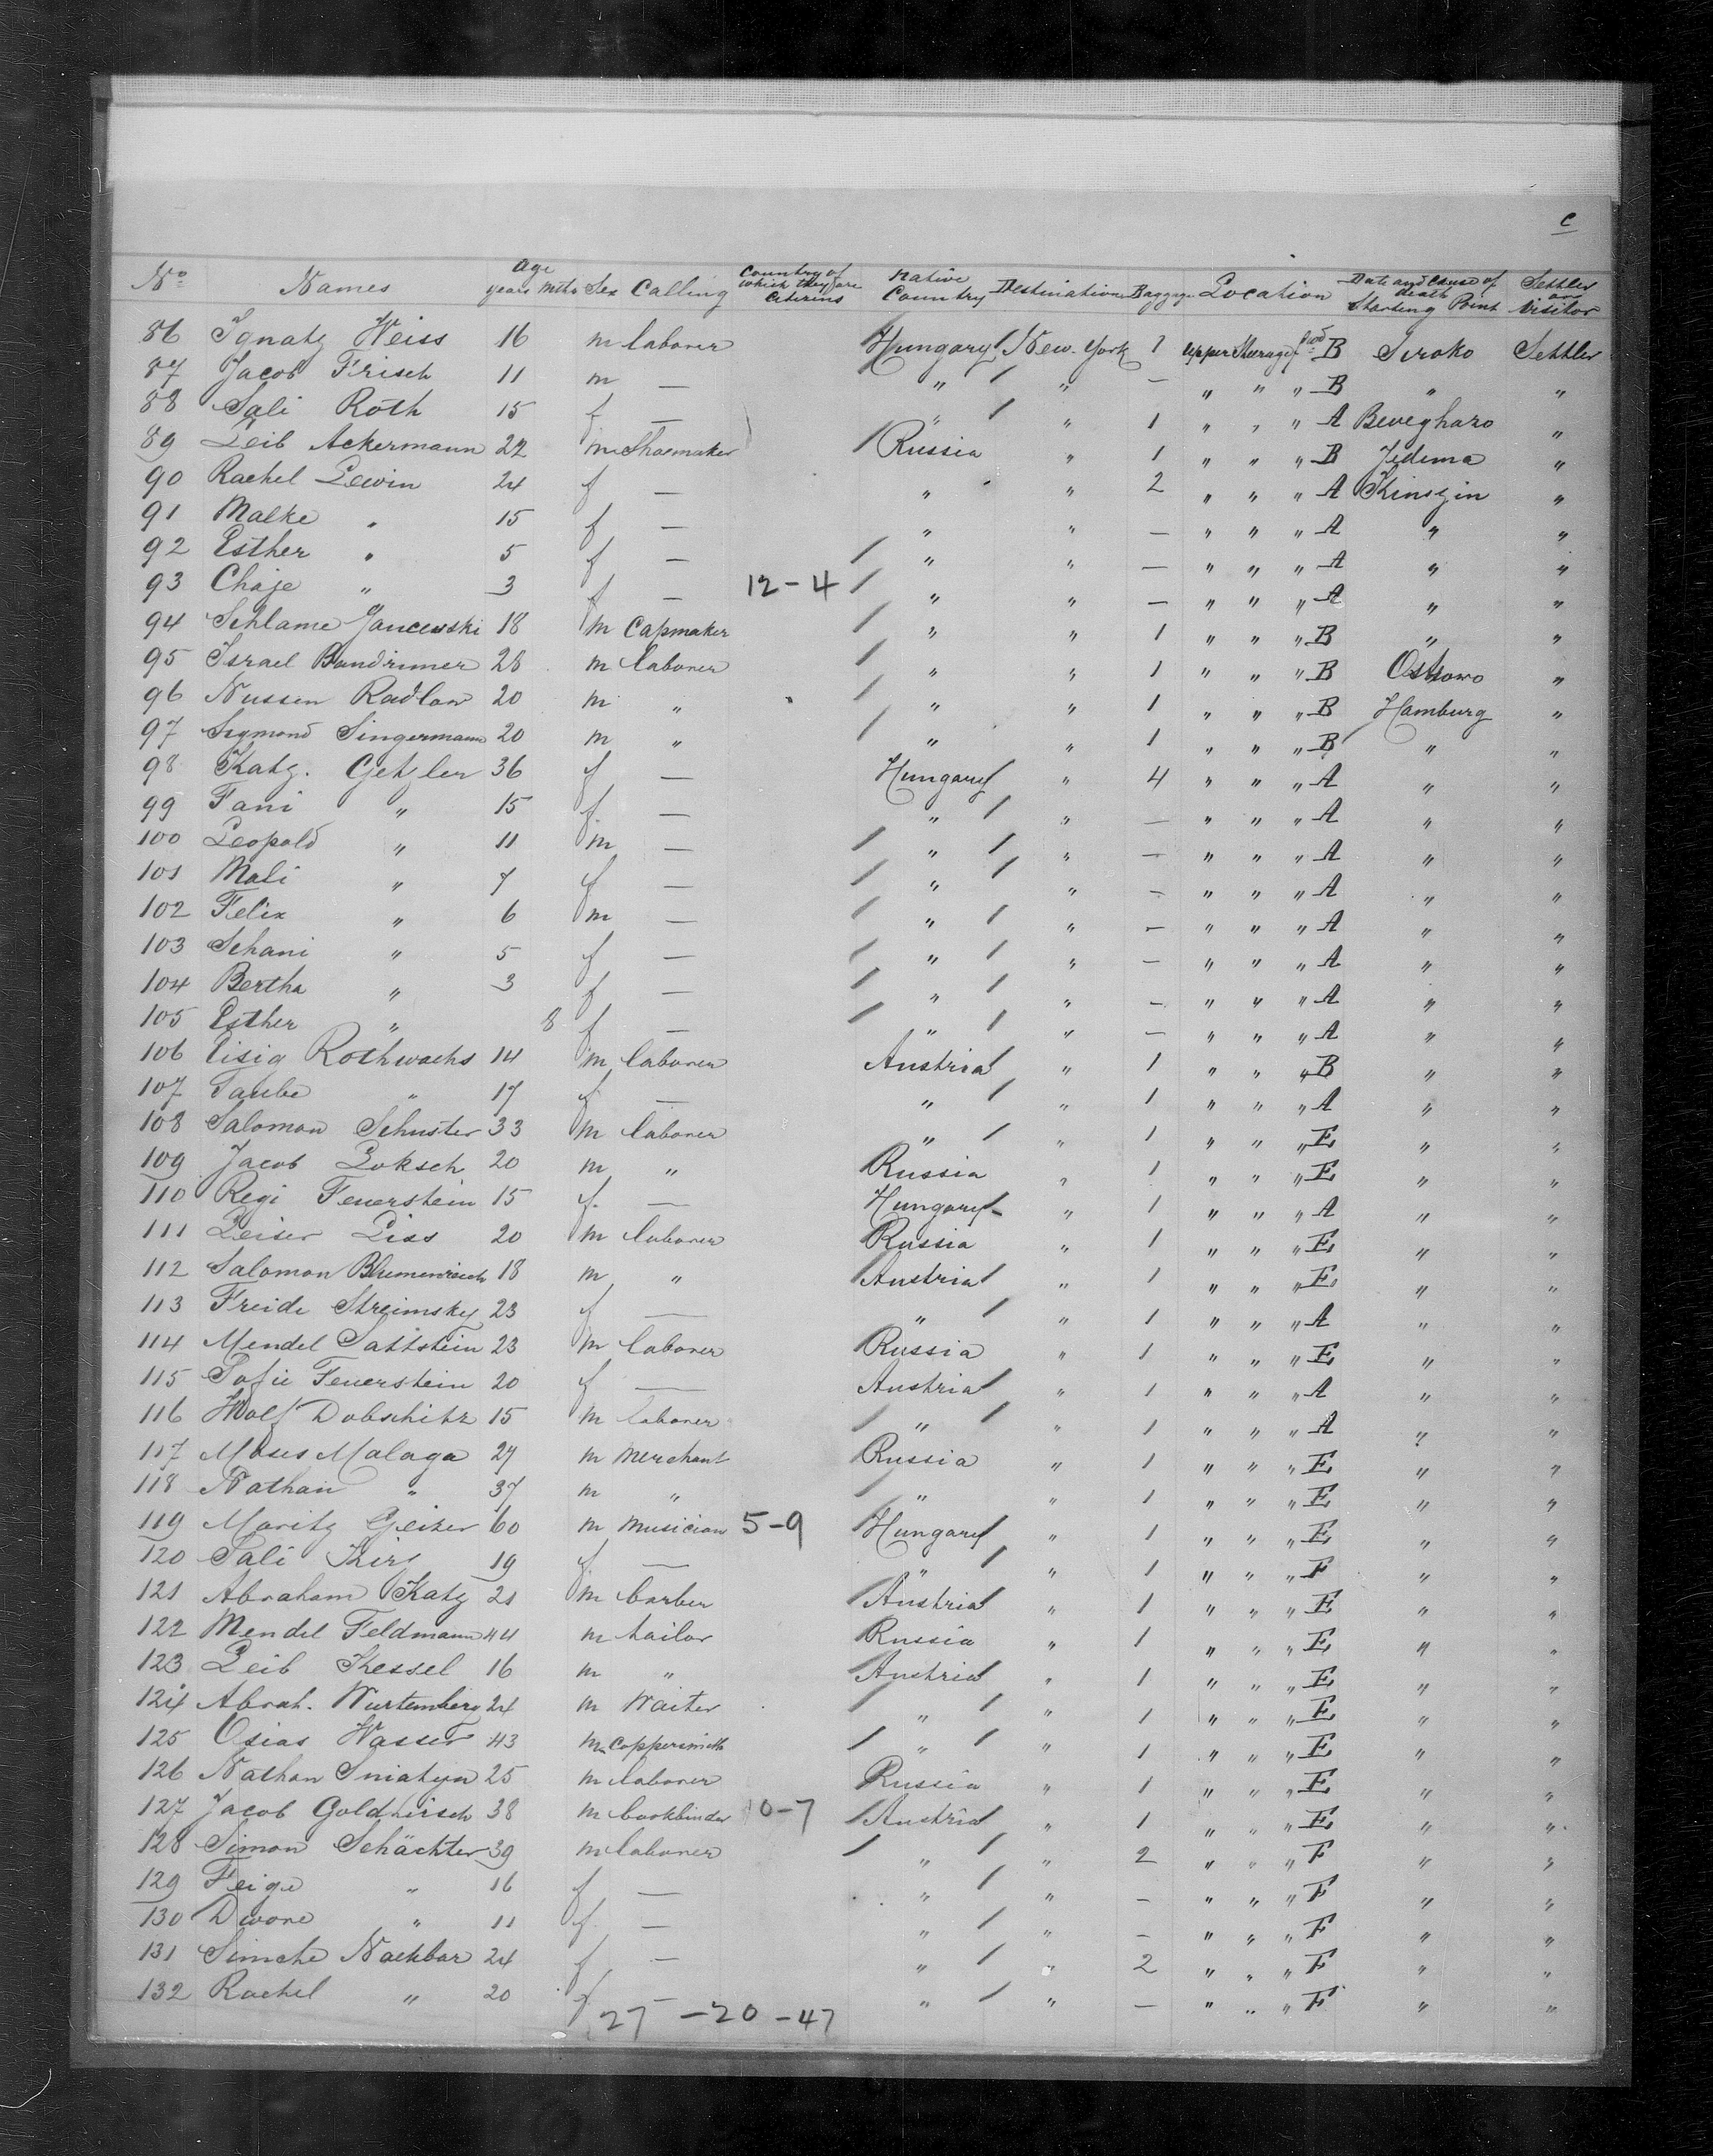 C
No. Names Age years Mths Sex Calling Country of which they are Citizens Native Country Destination Baggage Location Date and Cause of death Starting Point Settler or Visitor
86 Ignatz Weiss 16 m laborer Hungary New-York 1 upper Steerage B Siroko Settler
87 Jacob Frisch 11 m — " " — " " " B " "
88 Sali Roth 15 f — " " 1 " " " A Bevegharo "
89 Leib Ackermann 22 m Shoemaker Russia " 1 " " " B Jedema "
90 Rachel Lewin 24 f — " " 2 " " " A Kinszin "
91 Malke " 15 f — " " — " " " A " "
92 Esther " 5 f — " " — " " " A " "
93 Chaje " 3 f — 12-4 " " — " " " A " "
94 Schlame Jancewski 18 m Capmaker " " 1 " " " B " "
95 Israel Bandrimer 28 m laborer " " 1 " " " B Ostrowo "
96 Nussen Radlow 20 m " " " 1 " " " B Hamburg "
97 Sigmond Singermann 20 m " " " 1 " " " B " "
98 Katz. Getzler 36 f — Hungary " 4 " " " A " "
99 Fani " 15 f. — " " — " " " A " "
100 Leopold " 11 m — " " — " " " A " "
101 Mali " 7 f — " " — " " " A " "
102 Felix " 6 m — " " — " " " A " "
103 Schani " 5 f — " " — " " " A " "
104 Bertha " 3 f — " " — " " " A " "
105 Esther " 8 f — " " — " " " A " "
106 Eisig Rothwachs 14 m laborer Austria " 1 " " " B " "
107 Taube " 17 f — " " 1 " " " A " "
108 Salomon Schuster 33 m laborer " " 1 " " " E " "
109 Jacob Loksch 20 m " Russia " 1 " " " E " "
110 Regi Feuerstein 15 f. — Hungary " 1 " " " A " "
111 Leiser Liss 20 m laborer Russia " 1 " " " E " "
112 Salomon Blumenreich 18 m " Austria " 1 " " " E " "
113 Freide Streimsky 23 f — " " 1 " " " A " "
114 Mendel Sattstein 23 m laborer Russia " 1 " " " E " "
115 Sofie Feuerstein 20 f — Austria " 1 " " " A " "
116 Wolf Dobschitz 15 m laborer " " 1 " " " A " "
117 Moses Malaga 27 m merchant Russia " 1 " " " E " "
118 Nathan " 37 m " " " 1 " " " E " "
119 Moritz Geizer 60 m musician 5-9 Hungary " 1 " " " E " "
120 Sali 19 f. — " " 1 " " " F " "
121 Abraham Katz 21 m barber Austria " 1 " " " E " "
122 Mendel Feldmann 44 m tailor Russia " 1 " " " E " "
123 Leib Kessel 16 m " Austria " 1 " " " E " "
124 Abrah. Wurtemberg 24 m Waiter " " 1 " " " E " "
125 Osias Wasser 43 m coppersmith " " 1 " " " E " "
126 Nathan Sniatyn 25 m laborer Russia " 1 " " " E " "
127 Jacob Goldhirsch 38 m bookbinder 10-7 Austria " 1 " " " E " "
128 Simon Schächter 39 m laborer " " 2 " " " F " "
129 Feige " 16 f — " " — " " " F " "
130 Dwore " 11 f. — " " — " " " F " "
131 Simche Nachbar 24 f — " " 2 " " " F " "
132 Rachel " 20 f. — " " — " " " F " "
27 -20 -47